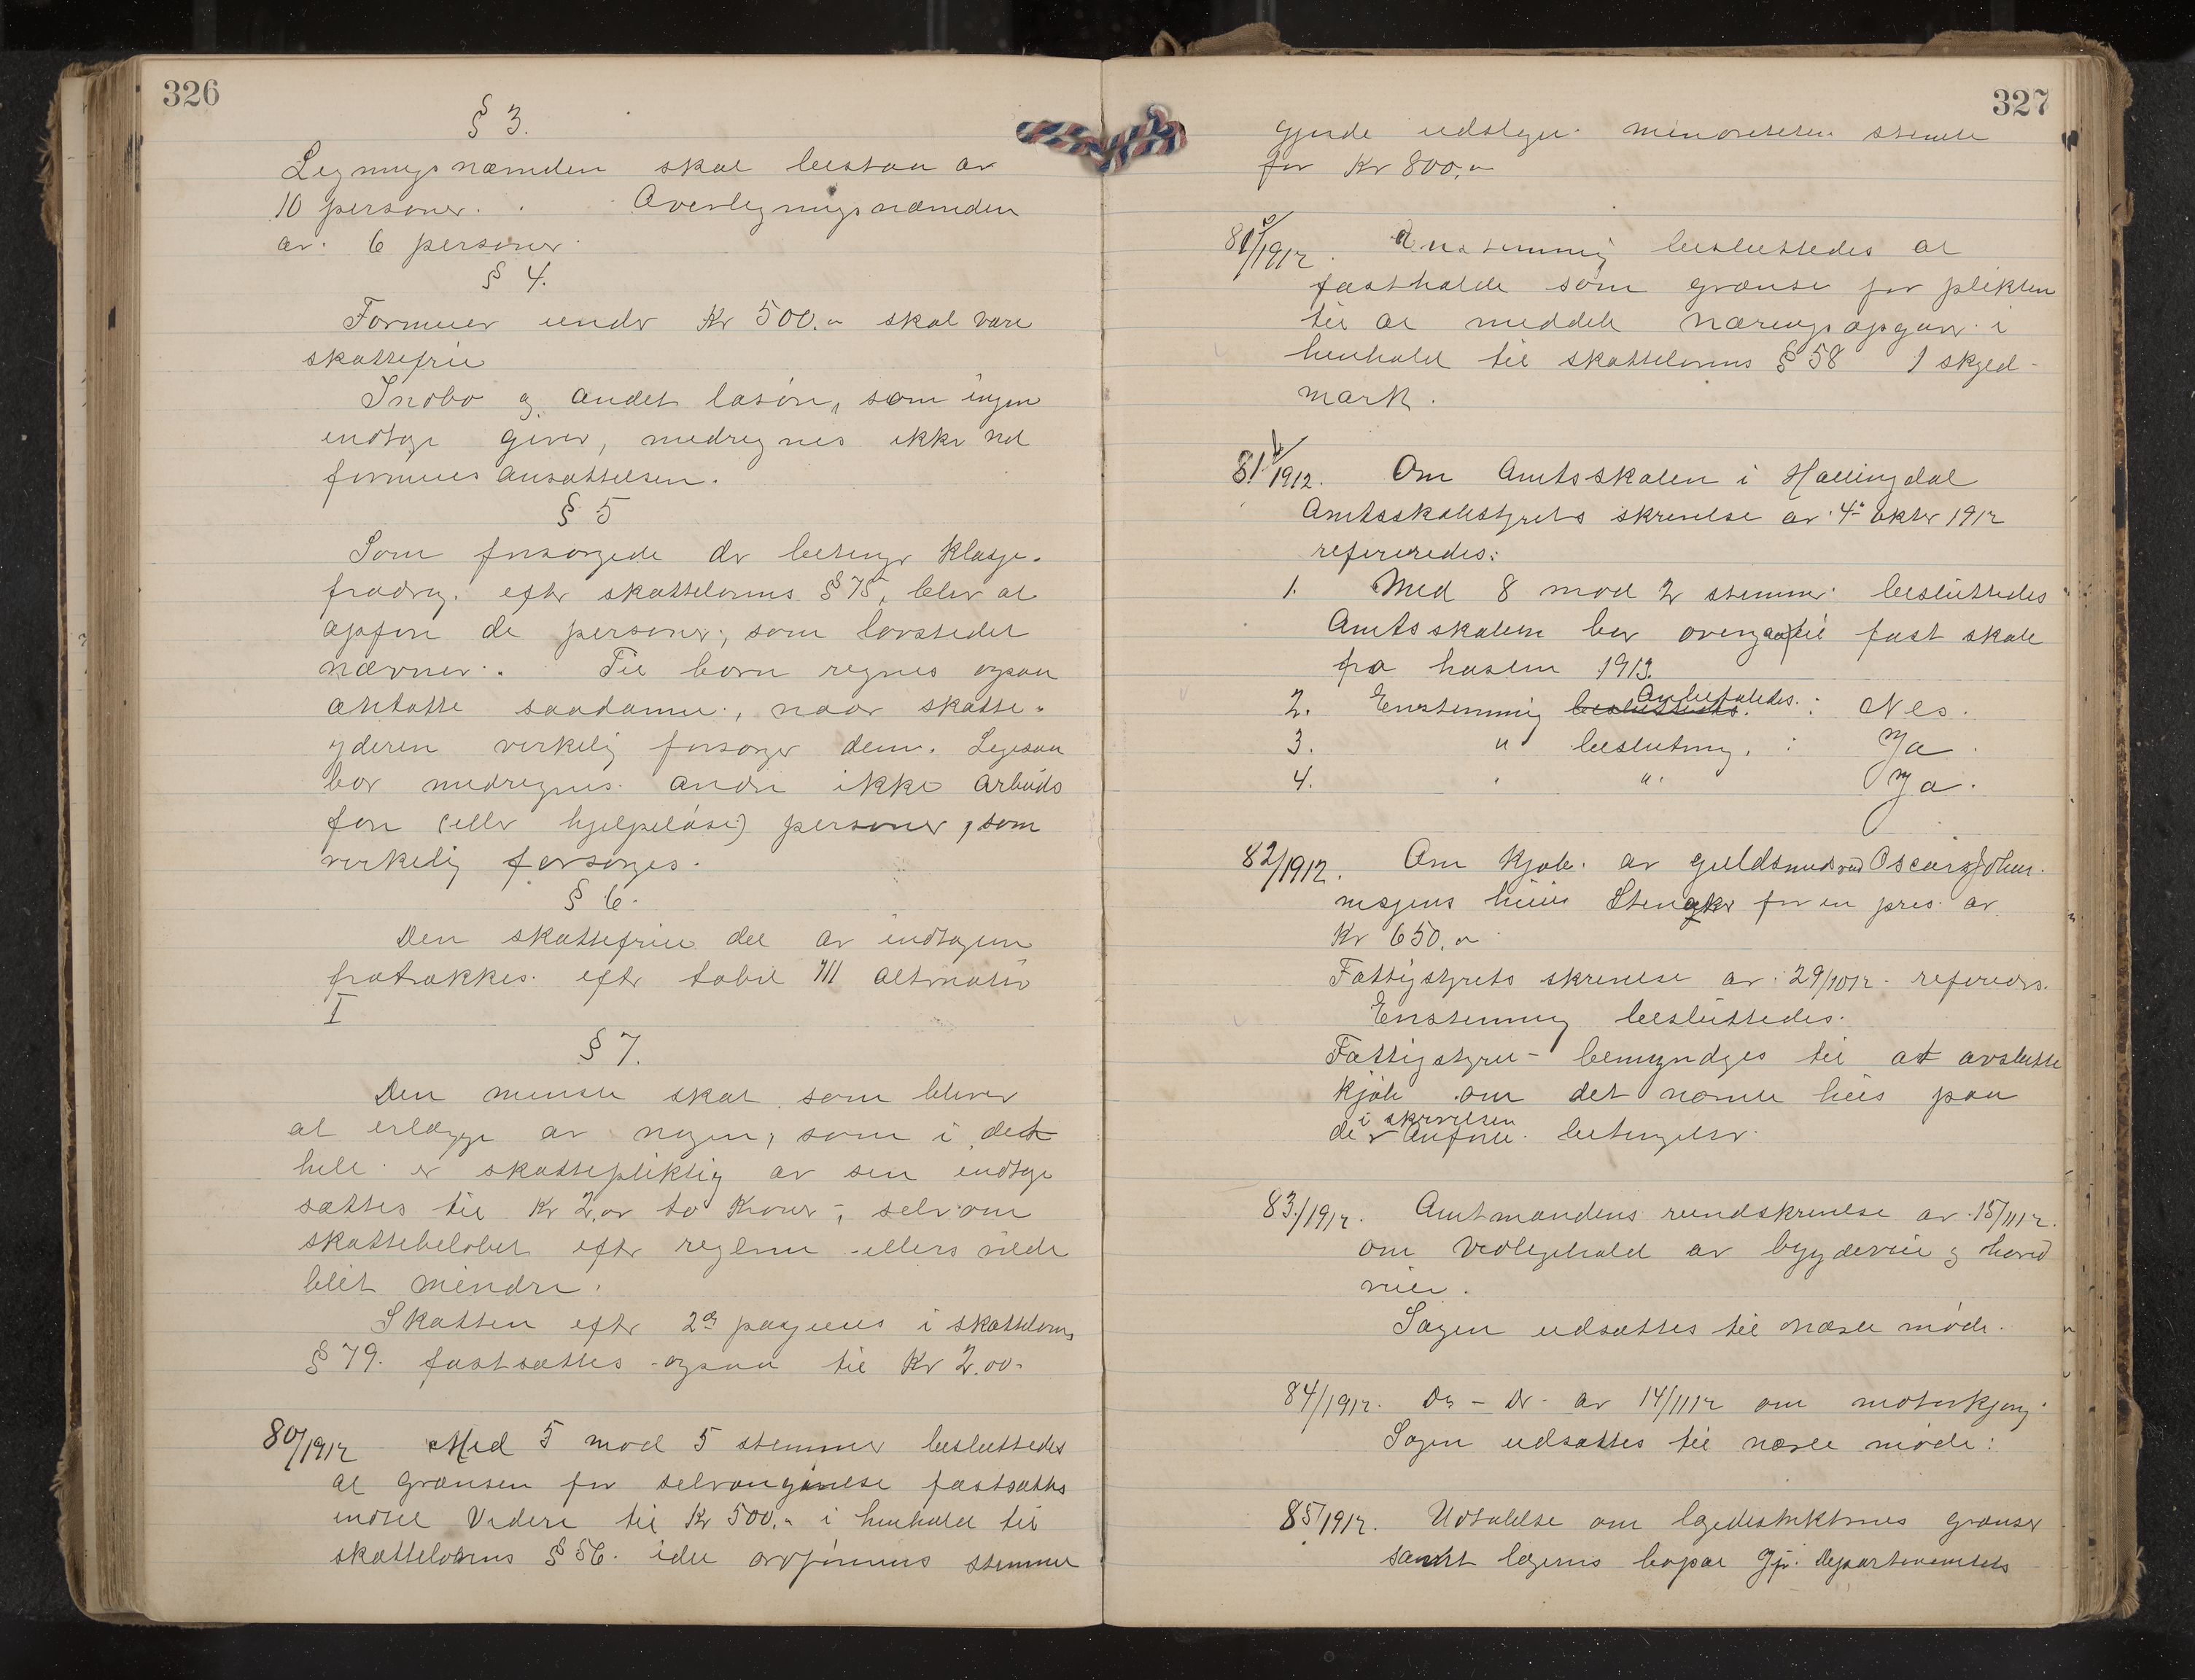 326
§ 3.
Ligningsnæmden skal bestaa av
10 personer. Overligningsnæmden
av 6 personer.
§ 4.
Formuer under Kr 500.- skal være
skattefrie
Indbo og andet løsøre, som ingen
indtægt giver, medregnes ikke ved
formuesansættelsen.
§ 5
Som forsørgede der betinger klasse-
fradrag efter skattelovens § 75, blir at
opføre de personer, som lovstedet
nævner. Til børn regnes ogsaa
antatte saadanne, naar skatte-
yderen virkelig forsørger dem. Ligesaa
bør medregnes andre ikke arbeids
føre (eller hjelpeløse) personer, som
virkelig forsørges.
§ 6.
Den skattefrie del av indtægten
fratrækkes efter tabel III alternativ
I
§ 7.
Den mindste skat som bliver
at erlægge av nogen, som i det
hele er skattepliktig av sin indtægt
sættes til Kr 2.00 to Kroner, selv om
skattebeløbet efter reglerne ellers vilde
blit mindre.
Skatten efter 2den passus i skattelovens
§ 79. fastsættes ogsaa til Kr 2.00.
80/1912 Med 5 mod 5 stemmer besluttedes
at grænsen for selvangivelse fastsættes
indtil Videre til Kr 500.- i henhold til
skattelovens § 56. idet ordførerens stemme
327
gjorde udslaget. minoriteten stemte
for Kr 800.-
81a/1912. Enstemmig besluttedes at
fastholde som grænse for plikten
til at meddele næringsopgaver i
henhold til skattelovens § 58 1 skyld-
mark.
81b/1912. Om Amtsskolen i Hallingdal
Amtsskolestyrets skrivelse av 4de oktbr 1912
refereredes:
1. Med 8 mod 2 stemmer besluttedes
Amtsskolen bør overgaa til fast skole
fra høsten 1913.
2. Enstemmig besluttedes Anbefaledes: Nes.
3. " beslutning: Ja.
4. " " Ja.
82/1912. Om kjøb av guldsmed Oscar Johan-
nesens hus Stengkr for en pris av
Kr 650.-
Fattigstyrets skrivelse av 29/10 12 refereres.
Enstemmig besluttedes.
Fattigstyret bemyndiges til at avslutte
kjøb om det nævnte hus paa
de i skrivelsen anførte betingelser.
83/1912. Amtmandens rundskrivelse av 15/11 12.
om vedligehold av bygdeveie og hoved
veier.
Sagen udsættes til næste møde.
84/1912. Do - Do av 14/11 12 om motorkjøring
Sagen udsættes til næste møde:
85/1912. Udtalelse om lægedistriktenes grænser
samt lægens bopæl Jfr. Departementets